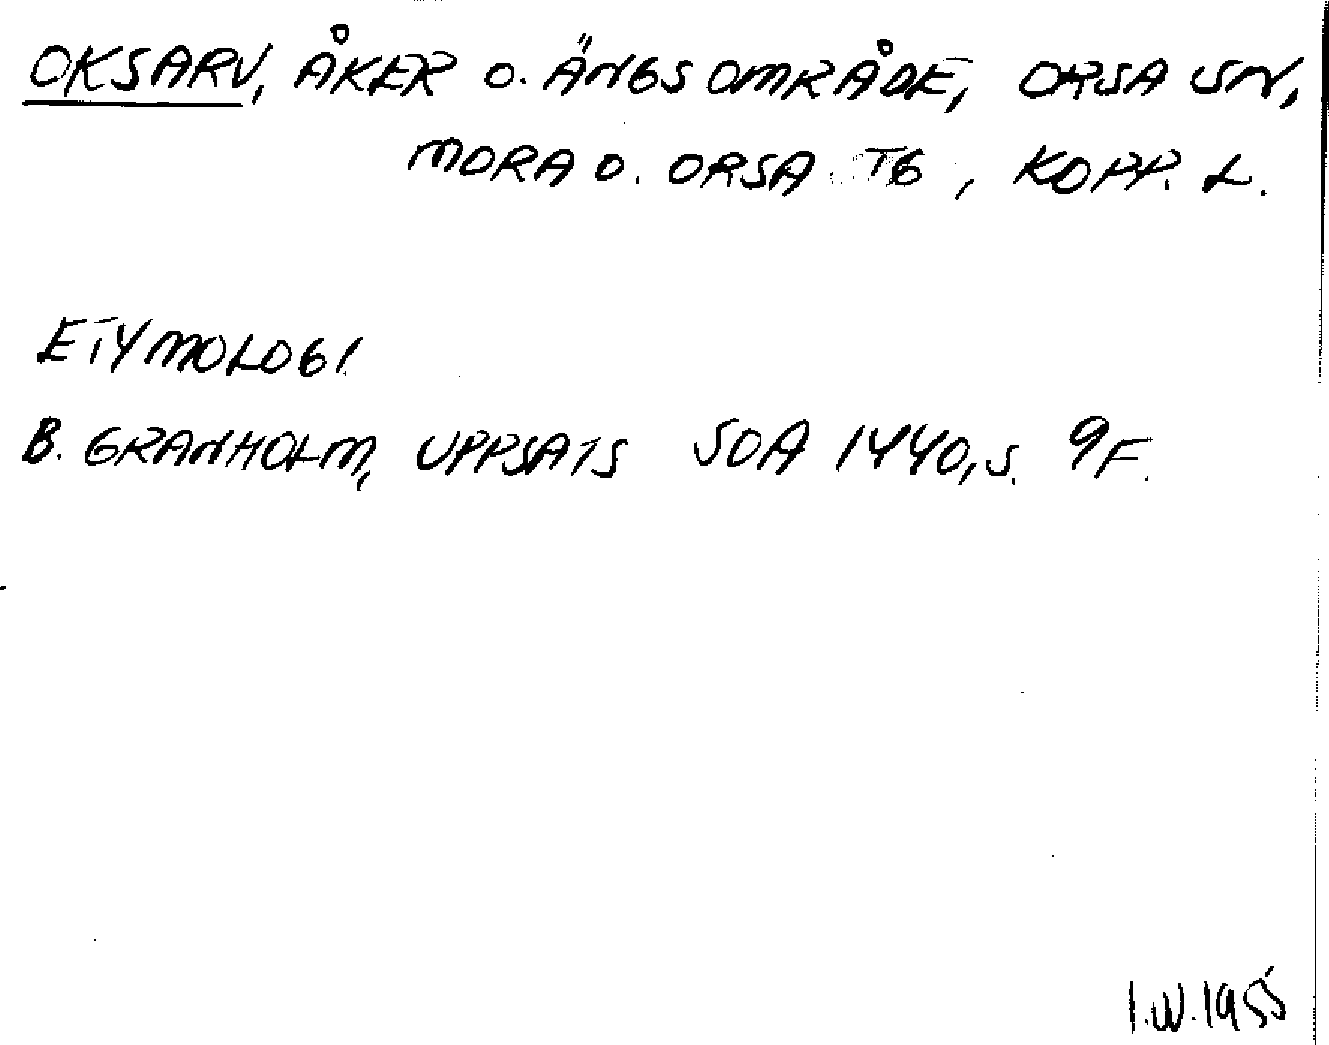 OKSARV, ÅKER O. ÄNGSOMRÅDE, ORSA SN,
MORA O. ORSA TG, KOPP. L.
ETYMOLOGI
B. GRANHOLM, UPPSATS SOA 1440, S. 9F.
I.W. 1955